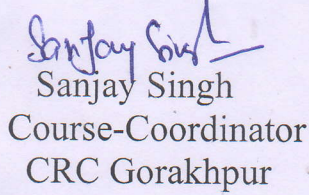 Sanjay Singh
Sanjay Singh
Course-Coordinator
CRC Gorakhpur